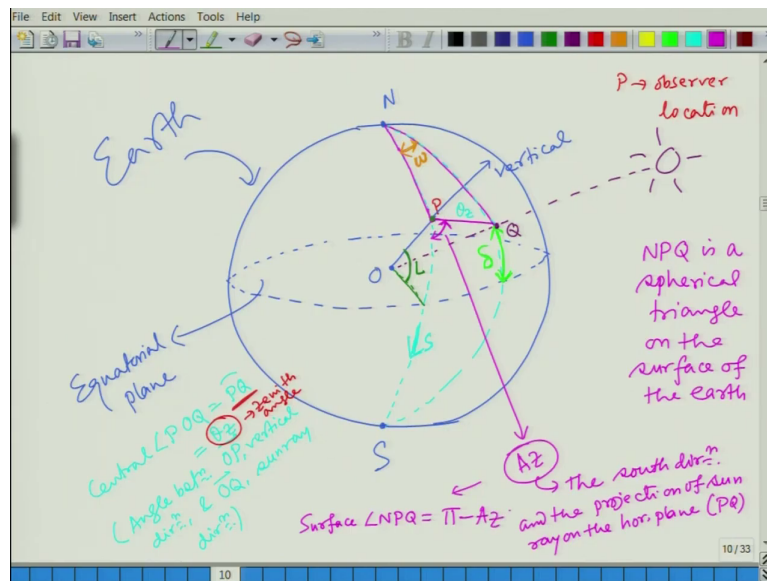 File Edit View Insert Actions Tools Help
B I
P → observer
location
N
Earth
ω
vertical
P
θz
Q
O
L
δ
S
NPQ is a
spherical
triangle
on the
surface of
the earth
Equatorial
plane
Central ∠POQ = PQ
= θz → zenith
angle
(Angle betn OP, vertical
dirn, & OQ, sunray
dirn)
S
Az
↳ The south dirn.
and the projection of sun
ray on the hor. plane (PQ)
Surface ∠NPQ = π − Az
10/33
10